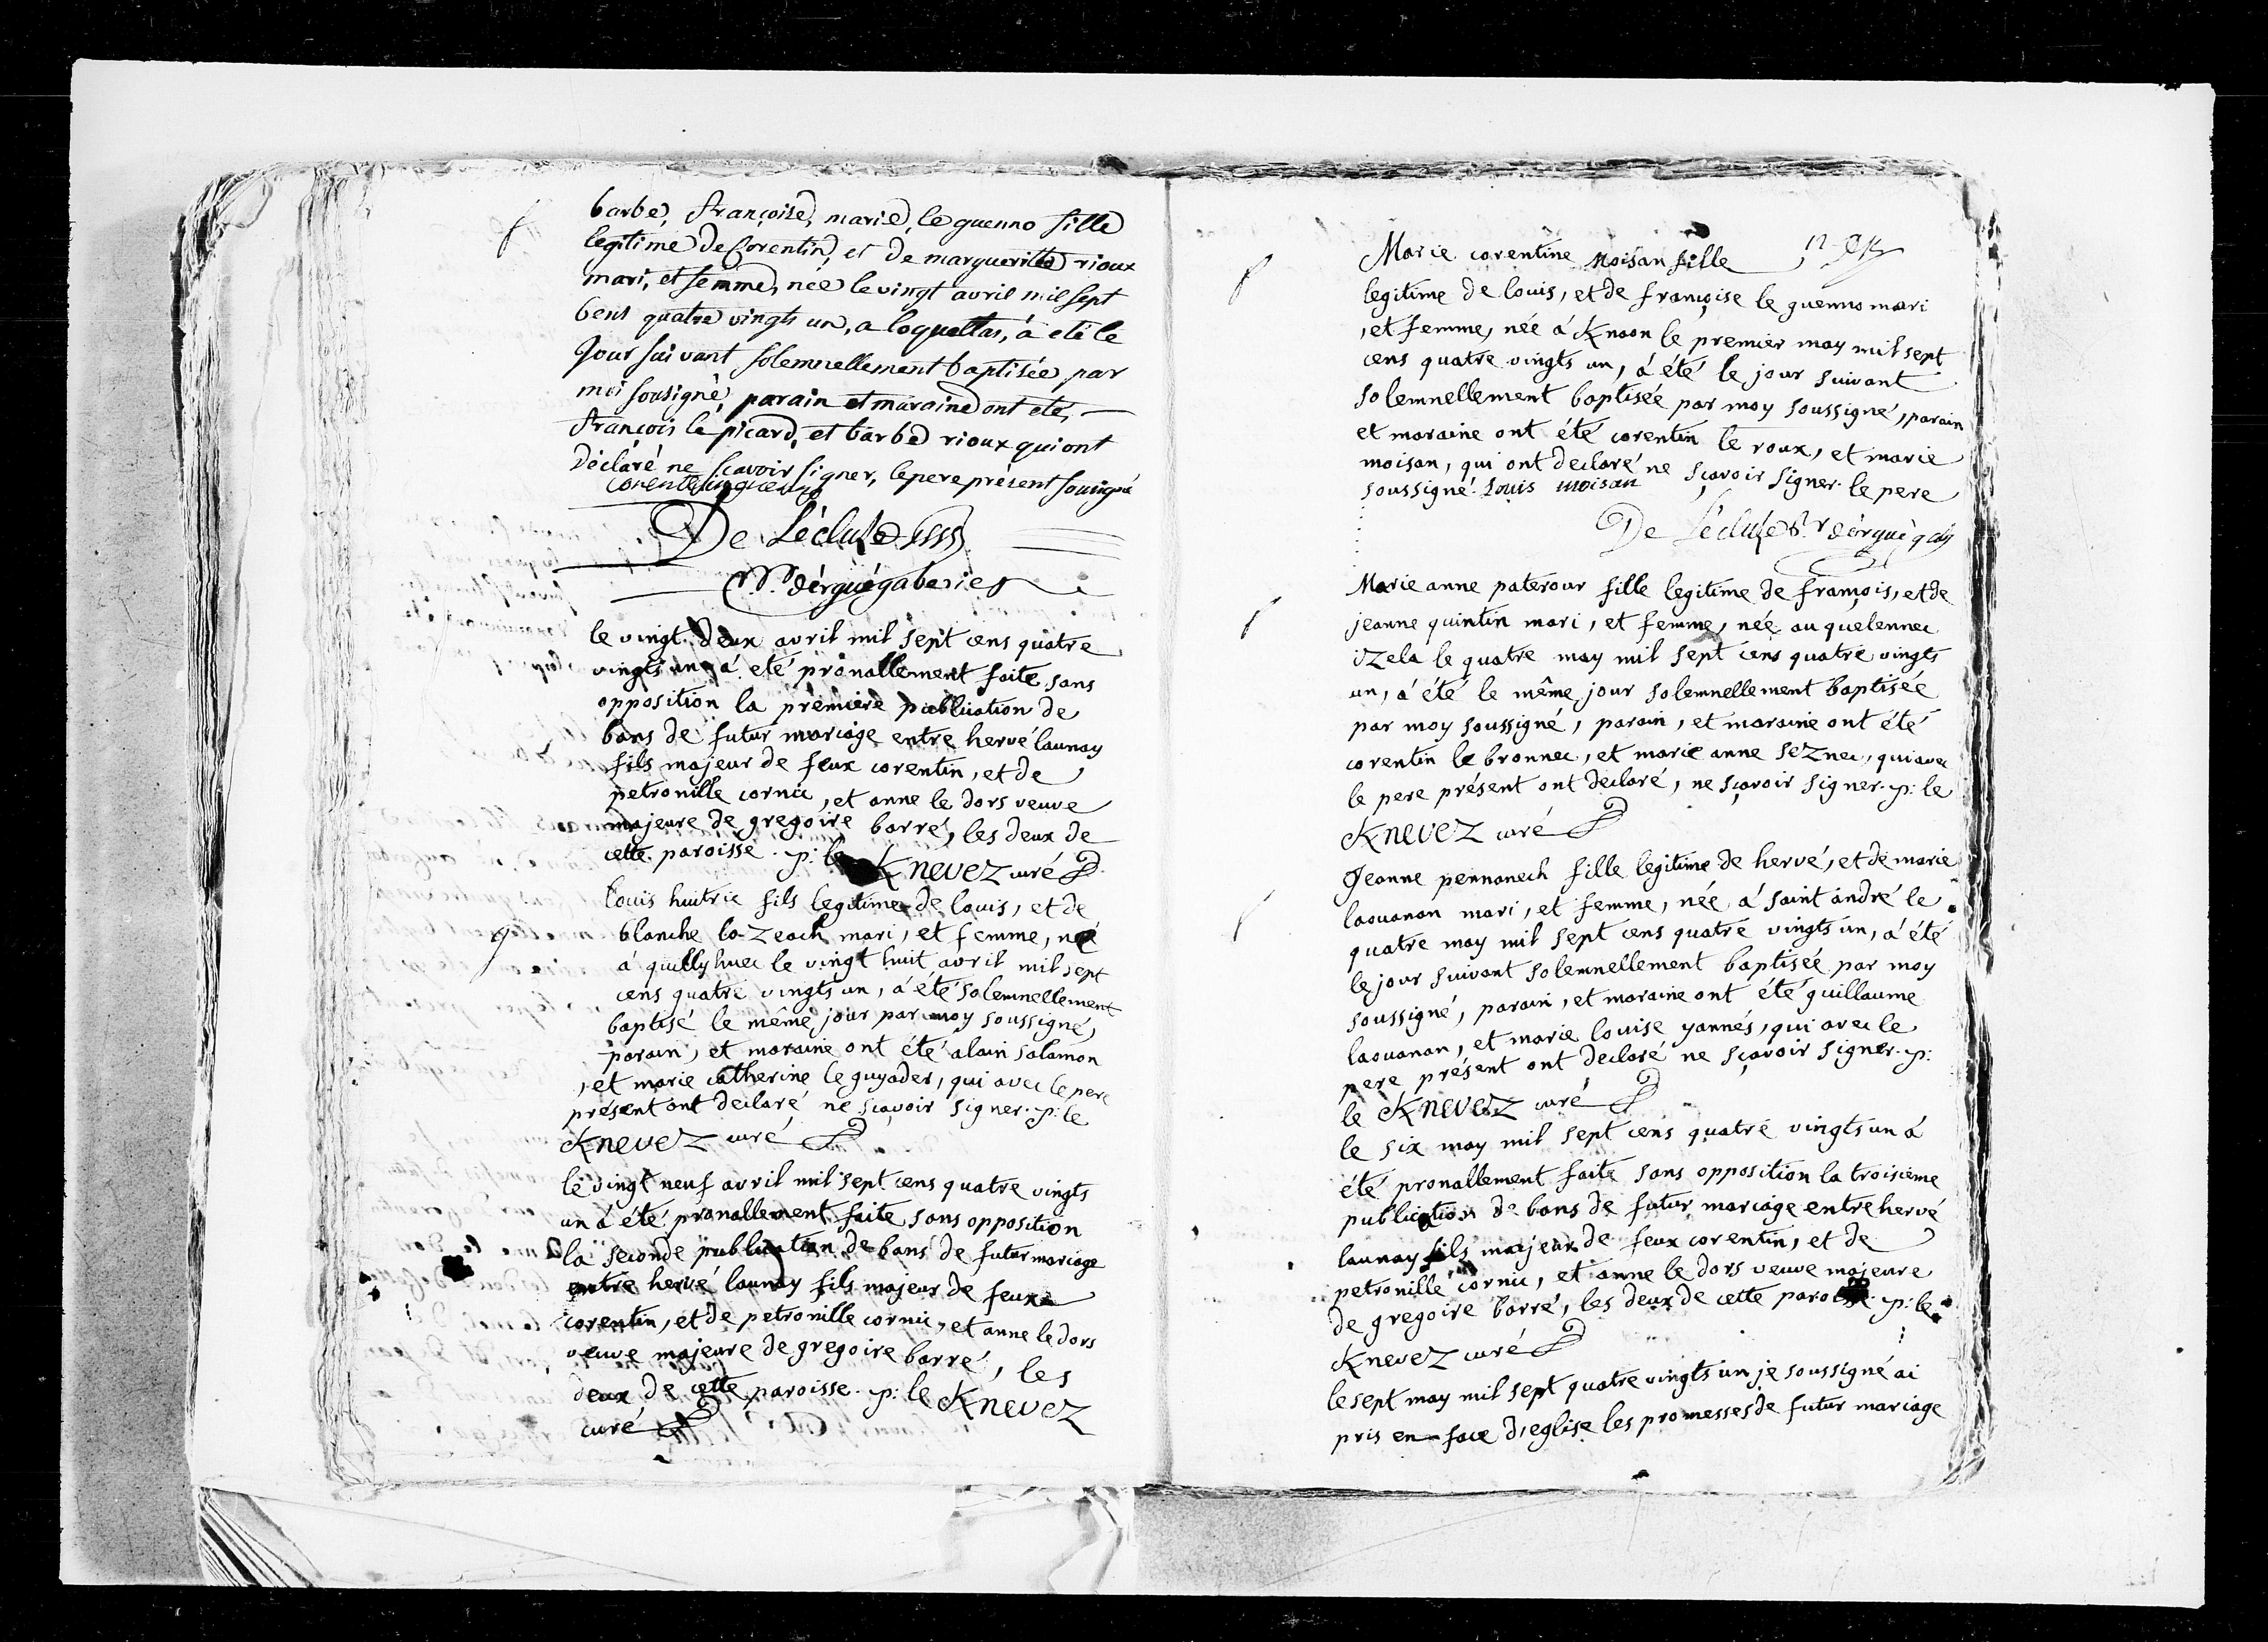 f
barbe, françoise, marie, le guenno fille
legitime de Corentin, et de marguerite rioux
mari, et femme, née le vingt avril mil sept
Cens quatre vingts un, a loqueltas, à eté le
Jour suivant solemnellement baptisée par
moi sousigné, parain et maraine ont eté,
françois le picard, et barbe rioux qui ont
déclaré ne scavoir signer, le pere présent sousigné
corentin guenno
De Lécluse
Vr. d'érguégaberic
le vingt deux avril mil sept cens quatre
vingts un a été pronallement faite sans
opposition la premiere publication de
bans de futur mariage entre hervé launay
fils majeur de feux corentin, et de
petronille cornic, et anne le dors veuve
majeure de gregoire barré, les deux de
cette paroisse. p: le Knevez curé
g
louis huitric fils legitime de louis, et de
blanche lozeach mari, et femme, né
á quillyhuec le vingt huit avril mil sept
cens quatre vingts un, á été solemnellement
baptisé le même jour par moy soussigné,
parain, et maraine ont été alain salamon
, et marie catherine le guyader, qui avec le pere
présent ont declaré ne sçavoir signer. p: le
Knevez curé
le vingt neuf avril mil sept cens quatre vingts
un á été pronallement faite sans opposition
la seconde publication de bans de futur mariage
entre hervé launay fils majeur de feux
corentin, et de petronille cornic, et anne le dors
veuve majeure de gregoire barré, les
deux de cette paroisse. p: le Knevez
curé
12
f
Marie corentine Moisan fille
legitime de louis, et de françoise le guenno mari
, et femme, née á Knaon le premier may mil sept
cens quatre vingts un, á été le jour suivant
solemnellement baptisée par moy soussigné, parain
et maraine ont été corentin le roux, et marie
moisan, qui ont declaré ne sçavoir signer. le pere
soussigné. Louis moisan
De Lécluse Vr d'érguégab
f
Marie anne paterour fille legitime de françois, et de
jeanne quintin mari, et femme, née au quelennec
izela le quatre may mil sept cens quatre vingts
un, á été le même jour solemnellement baptisée
par moy soussigné, parain, et maraine ont été
corentin le bronnec, et marie anne seznec, qui avec
le pere présent ont declaré, ne sçavoir signer. p: le
Knevez curé
f
Jeanne pennanech fille legitime de hervé, et de marie
laouanan mari, et femme, née á saint andré le
quatre may mil sept cens quatre vingts un, á été
le jour suivant solemnellement baptisée par moy
soussigné, parain, et maraine ont été guillaume
laouanan, et marie louise yannés, qui avec le
pere présent ont declaré ne sçavoir signer. p:
le Knevez curé
le six may mil sept cens quatre vingts un á
été pronallement faite sans opposition la troisieme
publication de bans de futur mariage entre hervé
launay fils majeur de feux corentin, et de
petronille cornic, et anne le dors veuve majeure
de gregoire barré, les deux de cette paroisse. p: le
Knevez curé
le sept may mil sept quatre vingts un je soussigné ai
pris en face d'eglise les promesses de futur mariage